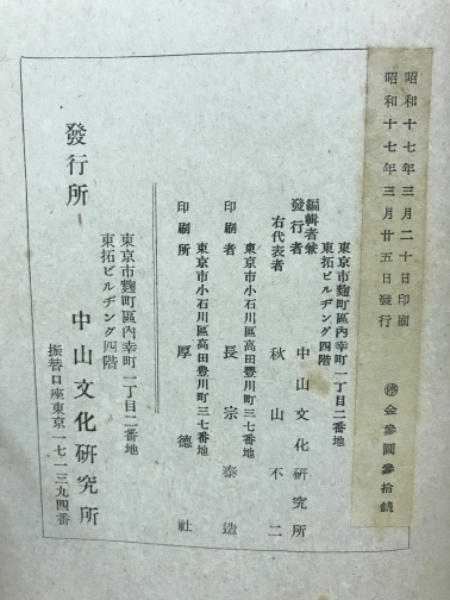 昭和十七年三月二十日印刷
昭和十七年三月廿五日發行
金參圓參拾錢
東京市麴町區內幸町一丁目二番地
東拓ビルヂング四階
編輯者兼
發行者
中山文化硏究所
右代表者
秋山不二
東京市小石川區高田豊川町三七番地
印刷者
長宗泰造
東京市小石川區高田豊川町三七番地
印刷所
厚德社
東京市麴町區內幸町一丁目二番地
東拓ビルヂング四階
發行所
中山文化硏究所
振替口座東京一七一三九四番